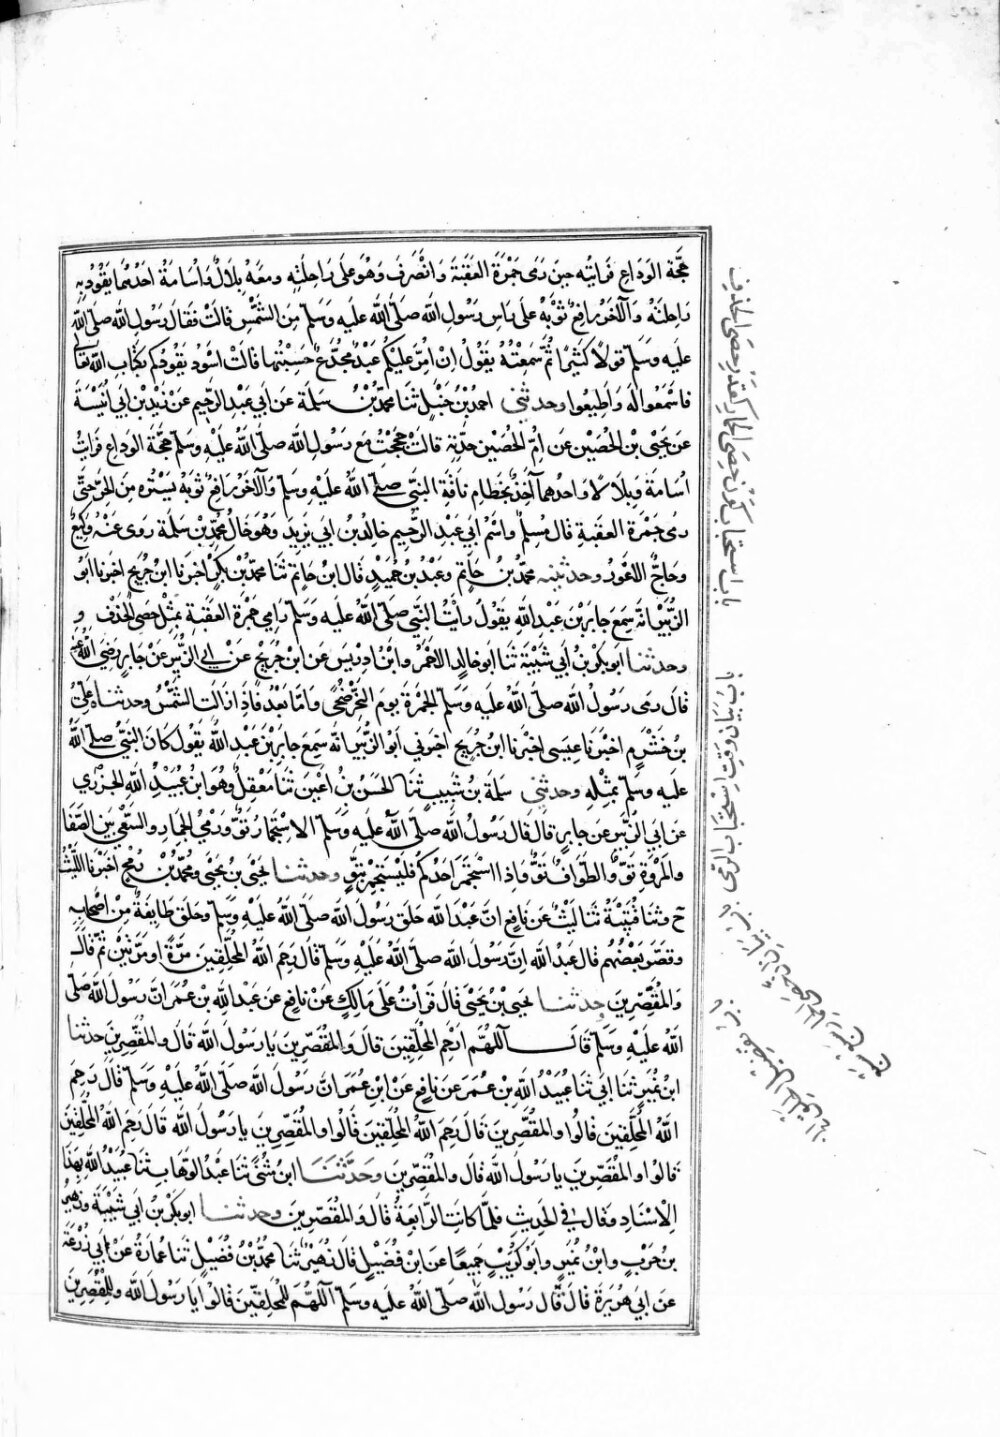 حجّة الوداع فرايته حين رمى جمرة العقبة وانصرف وهو على راحلته ومعه بلال واسامة احدهما يقود به
راحلته والآخر رافع ثوبه على راس رسول الله صلى الله عليه وسلم من الشمس قالت فقال رسول الله صلى الله
عليه وسلم قولا كثيرا ثم سمعته يقول ان امّر عليكم عبد مجدع حسبتها قالت اسود يقودكم بكتاب الله تعالى
فاسمعوا له واطيعوا وحدثني احمد بن حنبل ثنا محمد بن سلمة عن ابي عبد الرحيم عن زيد بن ابي انيسة
عن يحيى بن الحصين عن امّ الحصين جدته قالت حججت مع رسول الله صلى الله عليه وسلم حجّة الوداع فرايت
اسامة وبلالا واحدهما آخذ بخطام ناقة النبي صلى الله عليه وسلم والآخر رافع ثوبه يستره من الحر حتى
رمى جمرة العقبة قال مسلم واسم ابي عبد الرحيم خالد بن ابي يزيد وهو خال محمد بن سلمة روى عنه وكيع
وحاج الاعور وحدثني محمد بن حاتم وعبد بن حميد قال ابن حاتم ثنا محمد بن بكر اخبرنا ابن جريج اخبرنا ابو
الزبير انه سمع جابر بن عبد الله يقول رايت النبي صلى الله عليه وسلم رامي جمرة العقبة بمثل حصى الخذف و
وحدثنا ابو بكر بن ابي شيبة ثنا ابو خالد الاحمر وابن ادريس عن ابن جريج عن ابي الزبير عن جابر رضي الله عنه
قال رمى رسول الله صلى الله عليه وسلم الجمرة يوم النحر ضحى واما بعد فاذا زالت الشمس وحدثناه علي
بن خشرم اخبرنا عيسى اخبرنا ابن جريج اخبرني ابو الزبير انه سمع جابر بن عبد الله يقول كان النبي صلى الله
عليه وسلم بمثله وحدثني سلمة بن شبيب ثنا الحسن بن اعين ثنا معقل وهو ابن عبيد الله الجزري
عن ابي الزبير عن جابر قال قال رسول الله صلى الله عليه وسلم الاستجمار توّ ورمي الجمار والسعي بين الصفا
والمروة توّ والطواف توّ واذا استجمر احدكم فليستجمر بتوّ وحدثنا يحيى بن يحيى ومحمد بن رمح اخبرنا الليث
ح وثنا قتيبة ثنا ليث عن نافع ان عبد الله حلق رسول الله صلى الله عليه وسلم وحلق طايفة من اصحابه
وقصر بعضهم قال عبد الله ان رسول الله صلى الله عليه وسلم قال رحم الله المحلقين مرّة او مرّتين ثم قال
والمقصّرين حدثنا يحيى بن يحيى قال قرات على مالك عن نافع عن عبد الله بن عمر ان رسول الله صلى
الله عليه وسلم قال اللهم ارحم المحلقين قال والمقصرين يا رسول الله قال والمقصرين حدثنا
ابن نمير ثنا ابي ثنا عبيد الله بن عمر عن نافع عن ابن عمر ان رسول الله صلى الله عليه وسلم قال رحم
الله المحلقين قالوا والمقصرين قال رحم الله المحلقين قالوا والمقصرين يا رسول الله قال رحم الله المحلقين
قالوا والمقصرين يا رسول الله قال والمقصرين وحدثنا ابن مثنى ثنا عبد الوهاب ثنا عبيد الله بهذا
الاسناد وقال في الحديث فلما كانت الرابعة قال والمقصرين وحدثنا ابو بكر بن ابي شيبة وزهير
بن حرب وابن نمير وابو كريب جميعا عن ابن فضيل قال زهير ثنا محمد بن فضيل ثنا عمارة عن ابي زرعة
عن ابي هريرة قال قال رسول الله صلى الله عليه وسلم اللهم للمحلقين قالوا يا رسول الله وللمقصرين
باب استحباب كون حصى الجمار كقدر حصى الخذف
باب بيان وقت استحباب الرمي